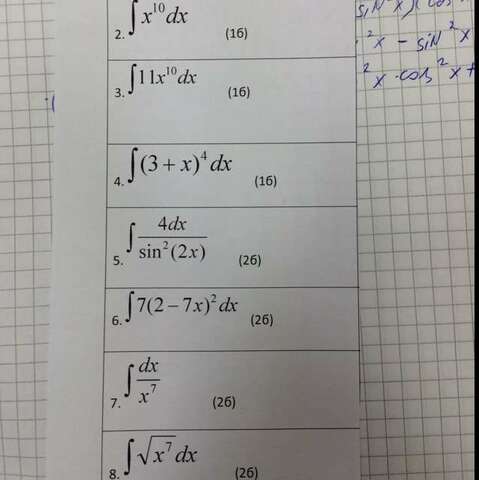 2. ∫x¹⁰dx (1б)
3. ∫11x¹⁰dx (1б)
4. ∫(3 + x)⁴dx (1б)
5. ∫4dx/sin²(2x) (2б)
6. ∫7(2 − 7x)²dx (2б)
7. ∫dx/x⁷ (2б)
8. ∫√x⁷dx (2б)
²x − sin²x
²x · cos²x +